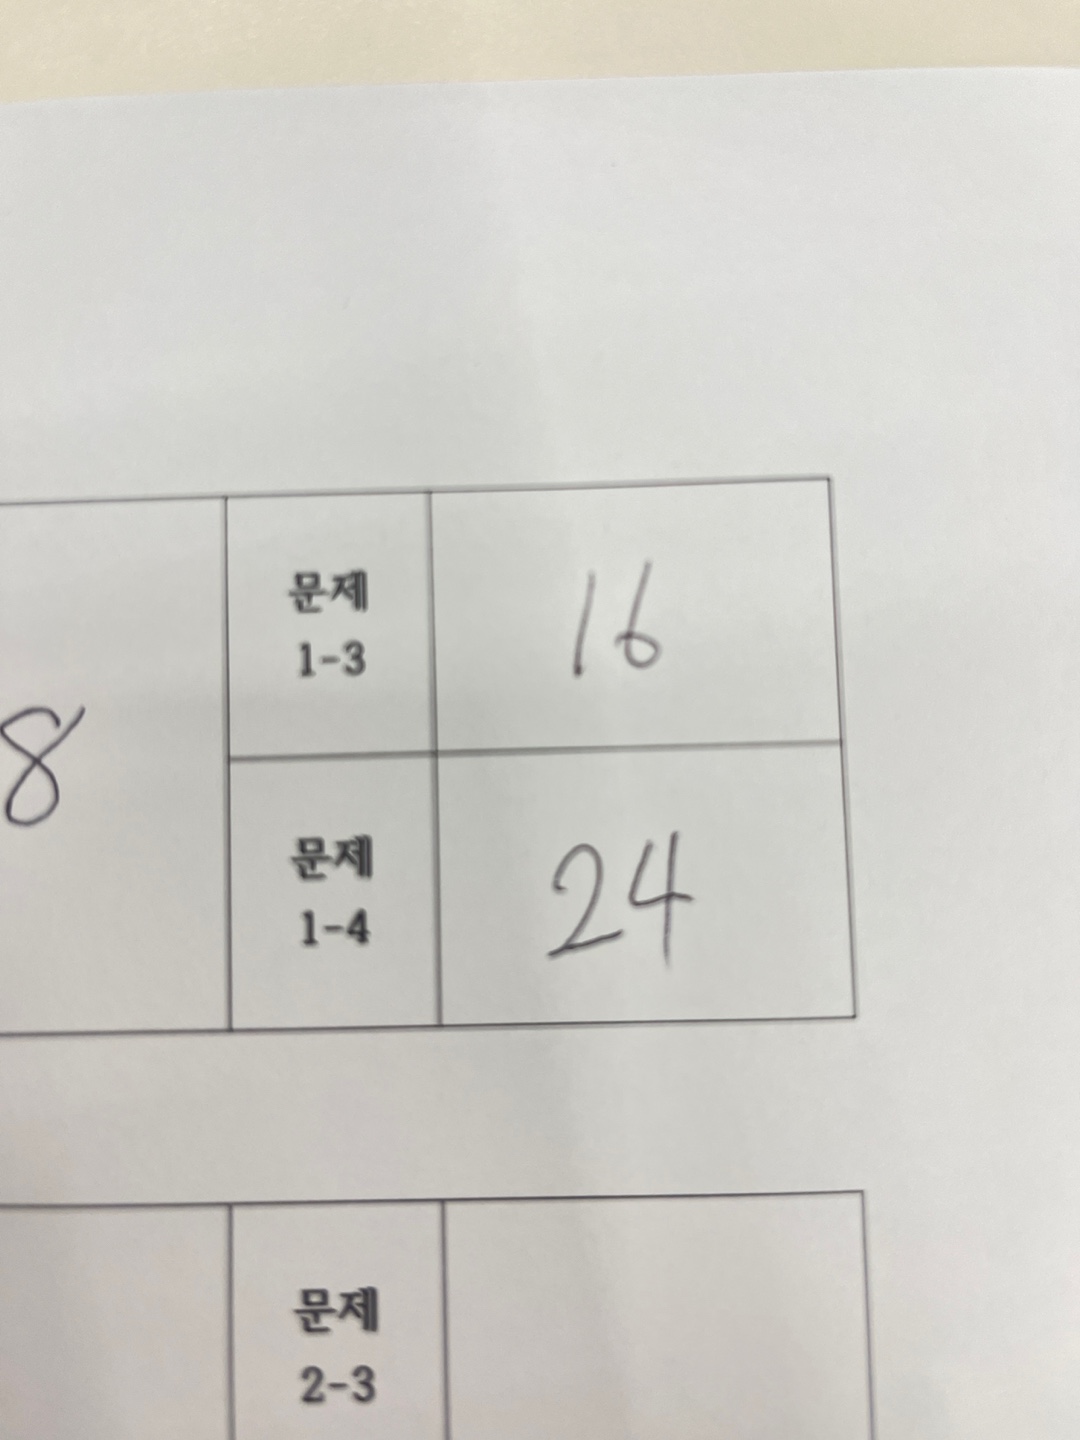 8
문제
1-3
16
문제
1-4
24
문제
2-3